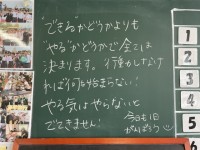 "できる"かどうかよりも
"やる"かどうかで全ては
決まります。行動しなけ
れば何も始まらない!
やる気はやらないと
でてきません!
今日も1日
がんばろう
1
2
3
4
5